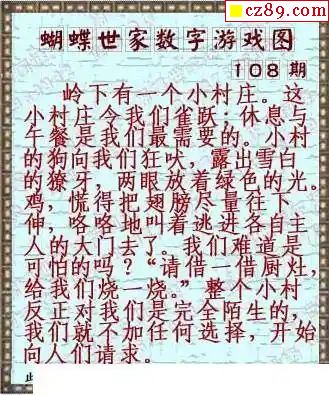 cz89.com
蝴蝶世家数字游戏图
108 期
岭下有一个小村庄。这
小村庄令我们雀跃；休息与
午餐是我们最需要的。小村
的狗向我们狂吠，露出雪白
的獠牙，两眼放着绿色的光。
鸡，慌得把翅膀尽量往下
伸，咯咯地叫着逃进各自主
人的大门去了。我们难道是
可怕的吗？“请借一借厨灶，
给我们烧一烧。”整个小村
反正对我们是完全陌生的，
我们就不加任何选择，开始
向人们请求。